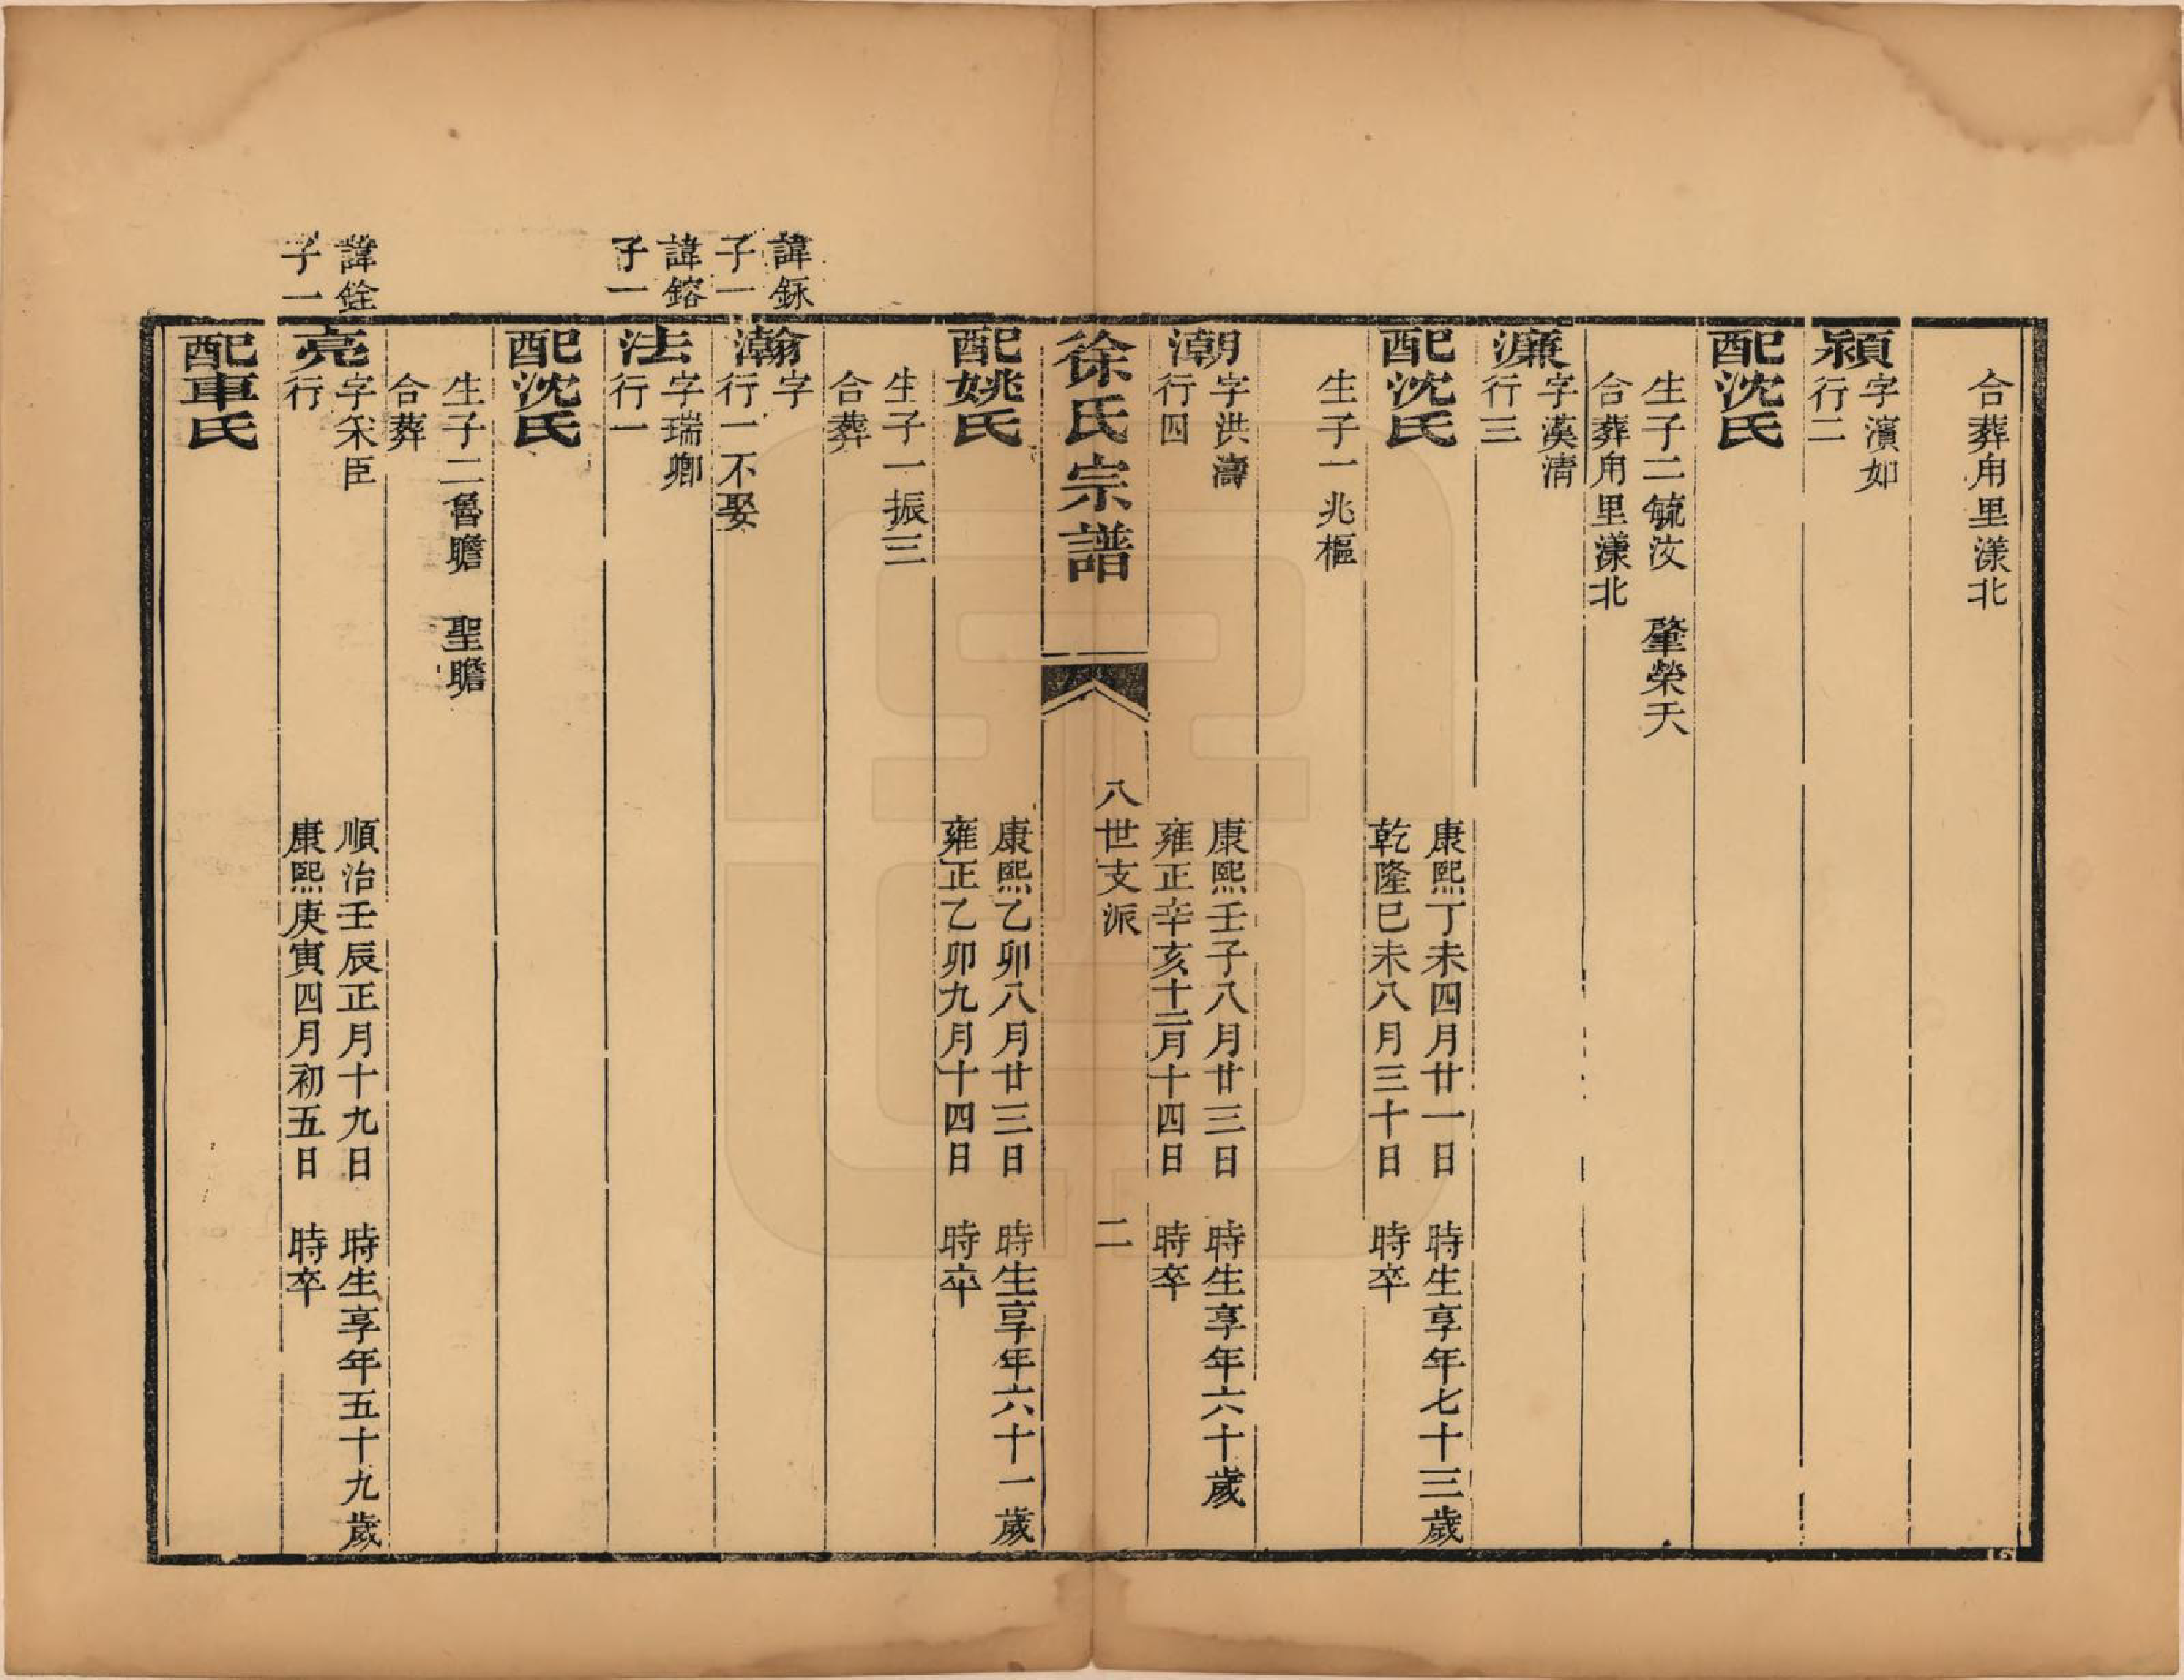 合葬甪里漾北
潁
字濱如
行二
配沈氏
生子二毓汝　肇榮夭
合葬甪里漾北
濂
字漢清
行三
康熙丁未四月廿一日　時生享年七十三歲
乾隆巳未八月三十日　時卒
配沈氏
生子一兆樞
潮
字洪濤
行四
康熙壬子八月廿三日　時生享年六十歲
雍正辛亥十二月十四日　時卒
徐氏宗譜
八世支派
二
配姚氏
康熙乙卯八月廿三日　時生享年六十一歲
雍正乙卯九月十四日　時卒
生子一振三
合葬
諱錸
子一
瀚
字
行一不娶
諱鎔
子一
法
字瑞卿
行一
配沈氏
生子二魯瞻　聖瞻
合葬
諱銓
子一
亮
字宋臣
行
順治壬辰正月十九日　時生享年五十九歲
康熙庚寅四月初五日　時卒
配車氏